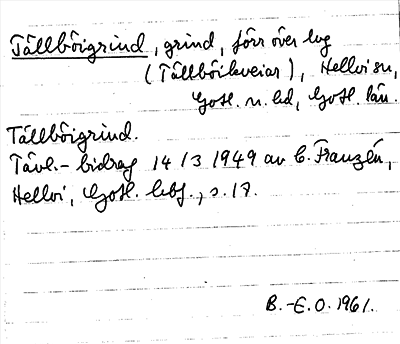 Tällböigrind, grind, förr över väg
(Tällböikveiar), Hellvi sn,
Gotl. n. hd, Gotl. län.
Tällböigrind.
Tävl.-bidrag 14/3 1949 av C. Franzén,
Hellvi, Gotl. , s. 17.
B.-E.O. 1961.